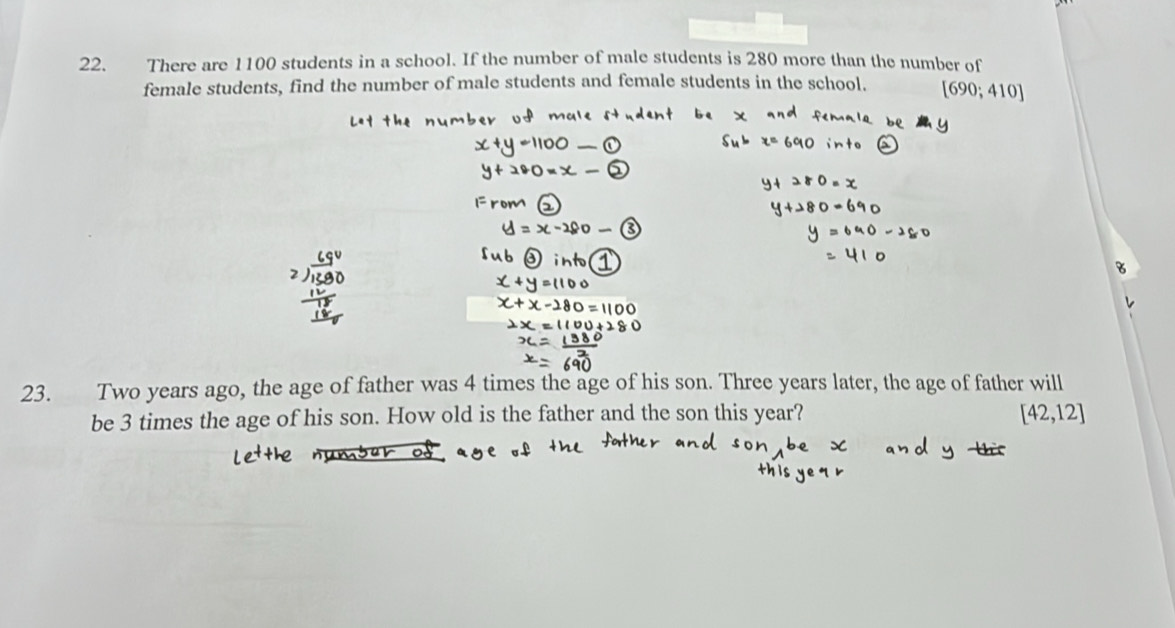 22. There are 1100 students in a school. If the number of male students is 280 more than the number of
female students, find the number of male students and female students in the school. [690; 410]
Let the number of male student be x and female be y
x+y=1100 — ①
y+280=x — ②
From ②
y=x-280 — ③
Sub ③ into ①
x+y=1100
x+x-280=1100
2x=1100+280
x=1380/2
x=690
690
2)1380
12
18
18
0
Sub x=690 into ②
y+280=x
y+280=690
y=690-280
=410
8
23. Two years ago, the age of father was 4 times the age of his son. Three years later, the age of father will
be 3 times the age of his son. How old is the father and the son this year? [42,12]
Let the number of age of the father and son be x and y this
this year